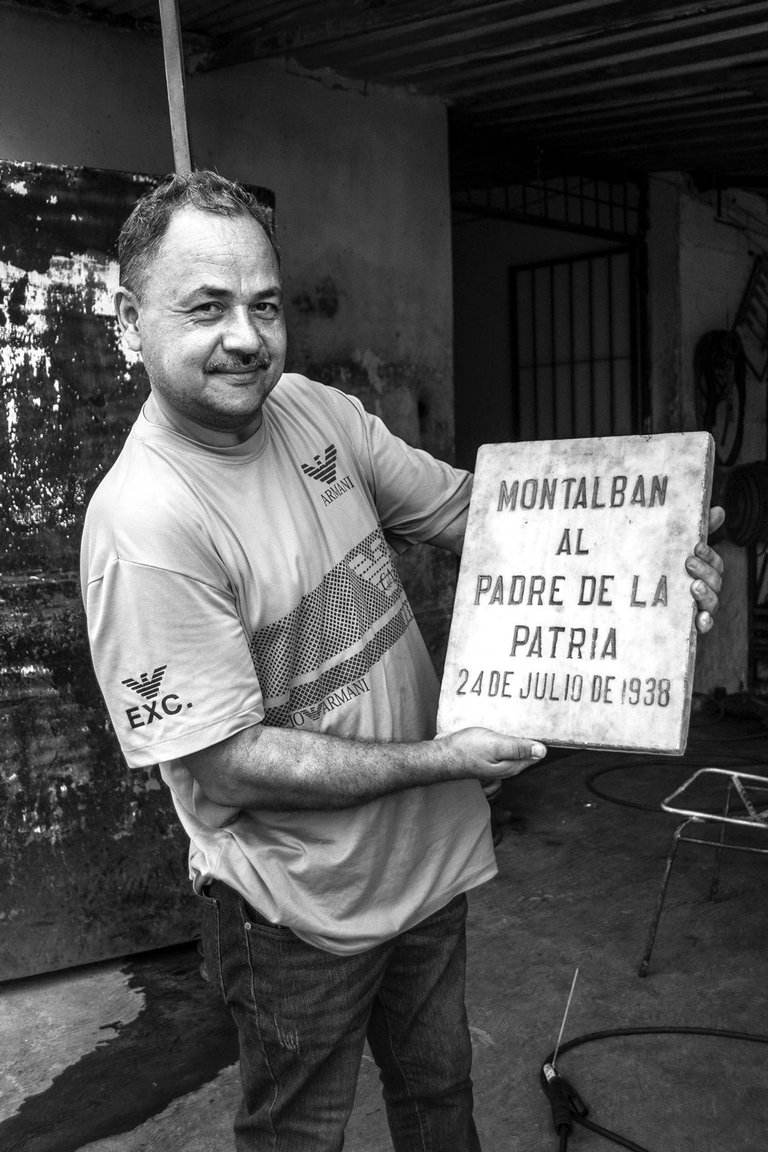 ARMANI
EXC.
ARMANI
MONTALBAN
AL
PADRE DE LA
PATRIA
24 DE JULIO DE 1938